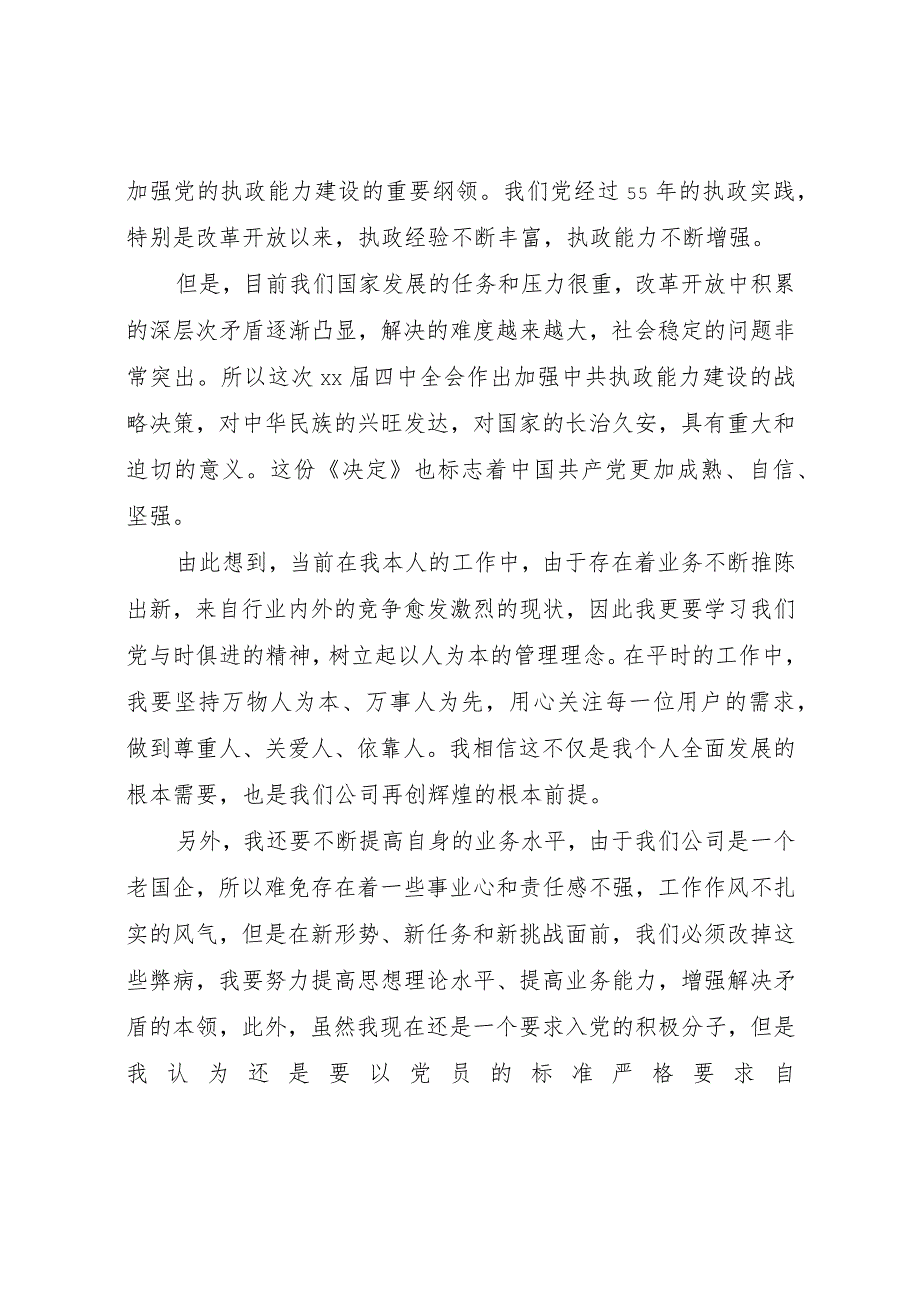 加强党的执政能力建设的重要纲领。我们党经过 55 年的执政实践，
特别是改革开放以来，执政经验不断丰富，执政能力不断增强。
但是，目前我们国家发展的任务和压力很重，改革开放中积累
的深层次矛盾逐渐凸显，解决的难度越来越大，社会稳定的问题非
常突出。所以这次 xx 届四中全会作出加强中共执政能力建设的战
略决策，对中华民族的兴旺发达，对国家的长治久安，具有重大和
迫切的意义。这份《决定》也标志着中国共产党更加成熟、自信、
坚强。
由此想到，当前在我本人的工作中，由于存在着业务不断推陈
出新，来自行业内外的竞争愈发激烈的现状，因此我更要学习我们
党与时俱进的精神，树立起以人为本的管理理念。在平时的工作中，
我要坚持万物人为本、万事人为先，用心关注每一位用户的需求，
做到尊重人、关爱人、依靠人。我相信这不仅是我个人全面发展的
根本需要，也是我们公司再创辉煌的根本前提。
另外，我还要不断提高自身的业务水平，由于我们公司是一个
老国企，所以难免存在着一些事业心和责任感不强，工作作风不扎
实的风气，但是在新形势、新任务和新挑战面前，我们必须改掉这
些弊病，我要努力提高思想理论水平、提高业务能力，增强解决矛
盾的本领，此外，虽然我现在还是一个要求入党的积极分子，但是
我认为还是要以党员的标准严格要求自